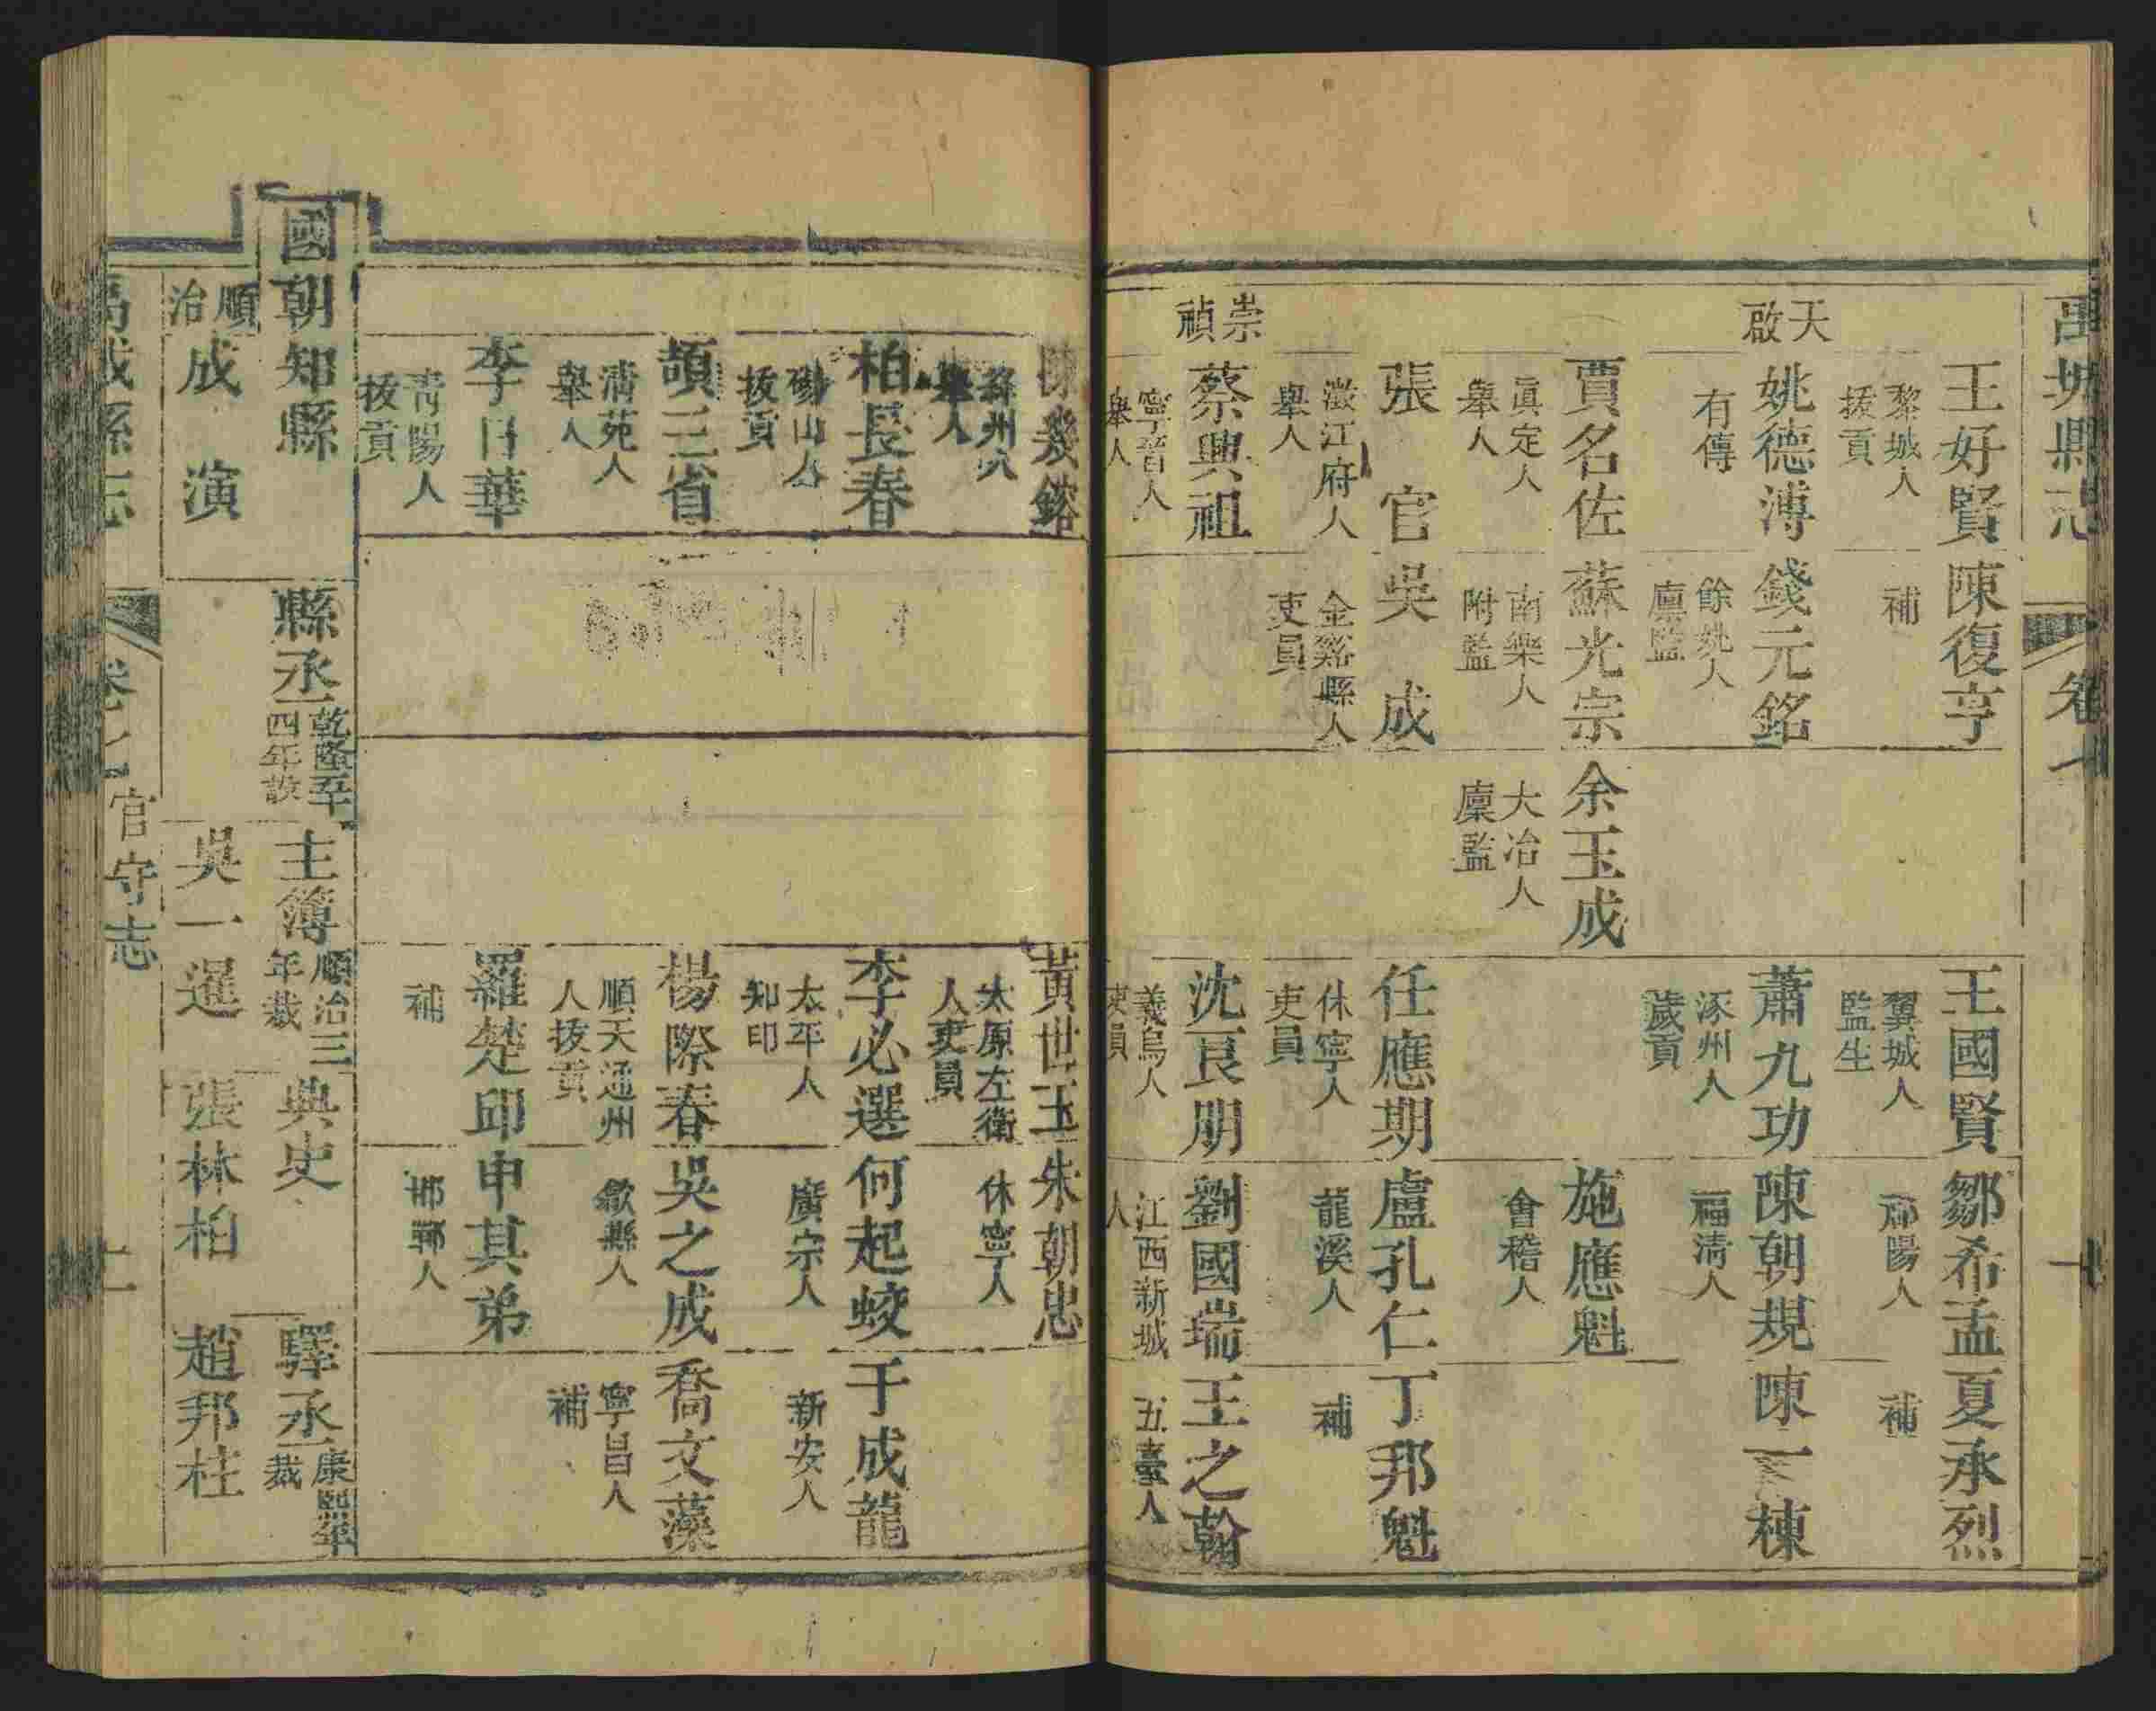 禹城縣志 卷七
王好賢 陳復亨 王國賢 鄒希孟 夏承烈
黎城人 補 翼城人
拔貢 監生 補
天啟
姚德溥 錢元銘 蕭九功 陳朝規 陳一棟
有傳 餘姚人 涿州人 福清人
廩監 歲貢
賈名佐 蘇光宗 余玉成 施應魁
真定人 南樂人 大冶人 會稽人
舉人 附監 廩監
張官 吳成 任應期 盧孔仁 丁邦魁
澂江府人 金谿縣人 休寧人 龍溪人 補
舉人 吏員 吏員
崇禎
蔡興祖 沈良朋 劉國瑞 王之翰
寧晉人 義烏人 江西新城 五臺人
舉人 吏員 人
陳幾 黃世玉 朱朝忠
蘇州人 太原左衛 休寧人
舉人 人吏員
柏長春 李必選 何起蛟 于成龍
碭山人 太平人 廣宗人 新安人
拔貢 知印
頡三省 楊際春 吳之成 喬文藻
清苑人 順天通州 歙縣人 寧昌人
舉人 人拔貢 補
李日華 羅楚邱 申其弟
青陽人 補 邯鄲人
拔貢
國朝知縣 縣丞 乾隆五十四年設 主簿 順治三年裁 典史 驛丞 裁
順治
成演 吳一暹 張林柏 趙邦柱
禹城縣志 卷七 官守志